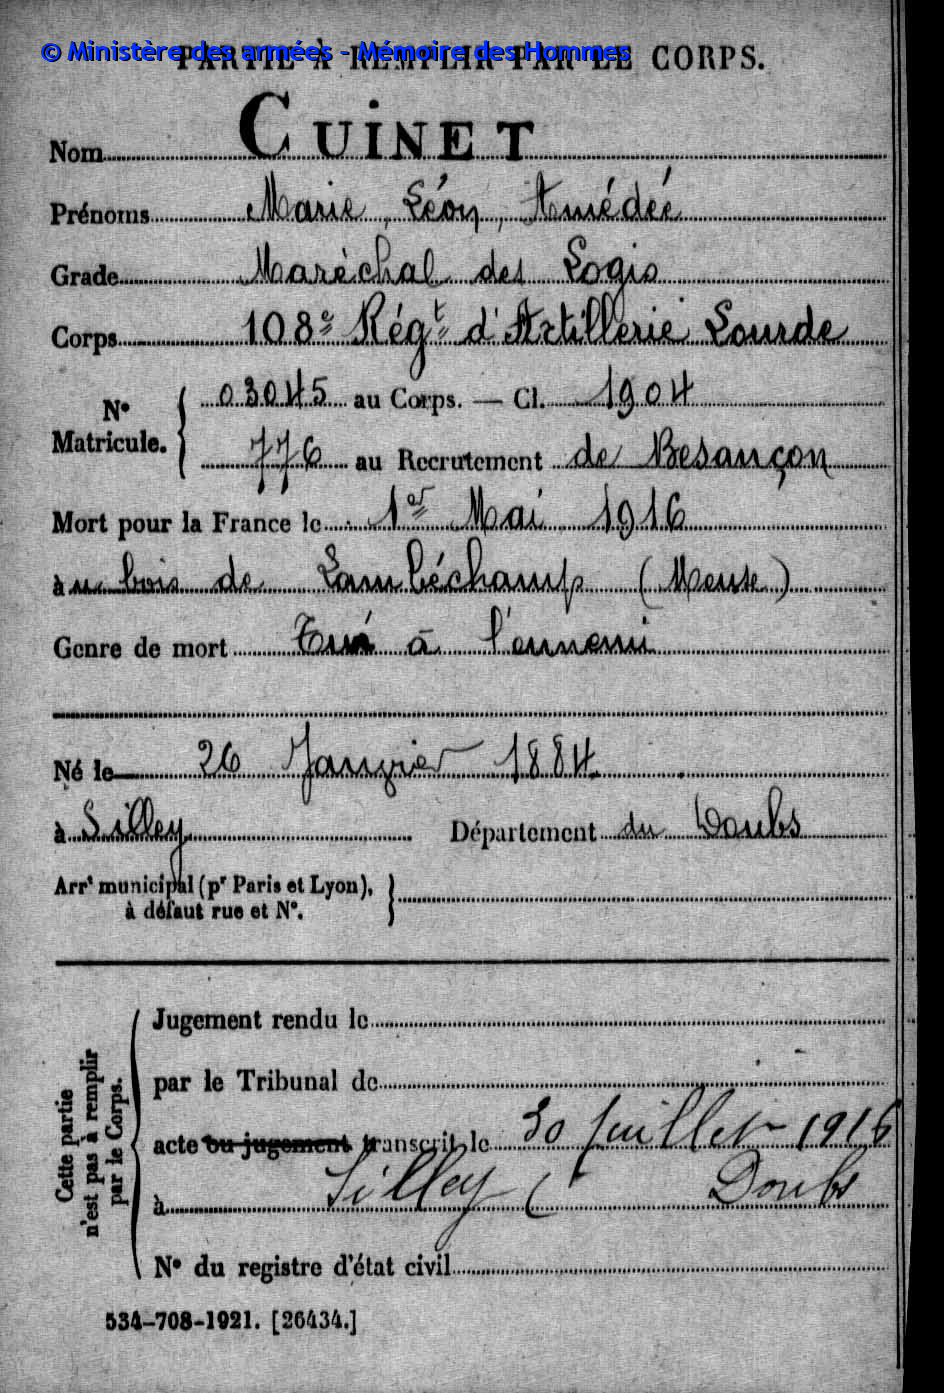 © Ministère des armées - Mémoire des Hommes
PARTIE À REMPLIR PAR LE CORPS.
Nom CUINET
Prénoms Marie, Léon, Amédée
Grade Maréchal des Logis
Corps 108e Régt d'Artillerie Lourde
No Matricule. { 03045 au Corps. — Cl. 1904
776 au Recrutement de Besançon
Mort pour la France le 1er Mai 1916
à u bois de Lambéchamp (Meuse)
Genre de mort Tué à l'ennemi
Né le 26 Janvier 1884
à Silley Département du Doubs
Arrt municipal (pr Paris et Lyon), }
à défaut rue et No.
Cette partie n'est pas à remplir par le Corps.
Jugement rendu le
par le Tribunal de
acte ou jugement transcrit le 30 Juillet 1916
à Silley ( Doubs
No du registre d'état civil
534-708-1921. [26434.]